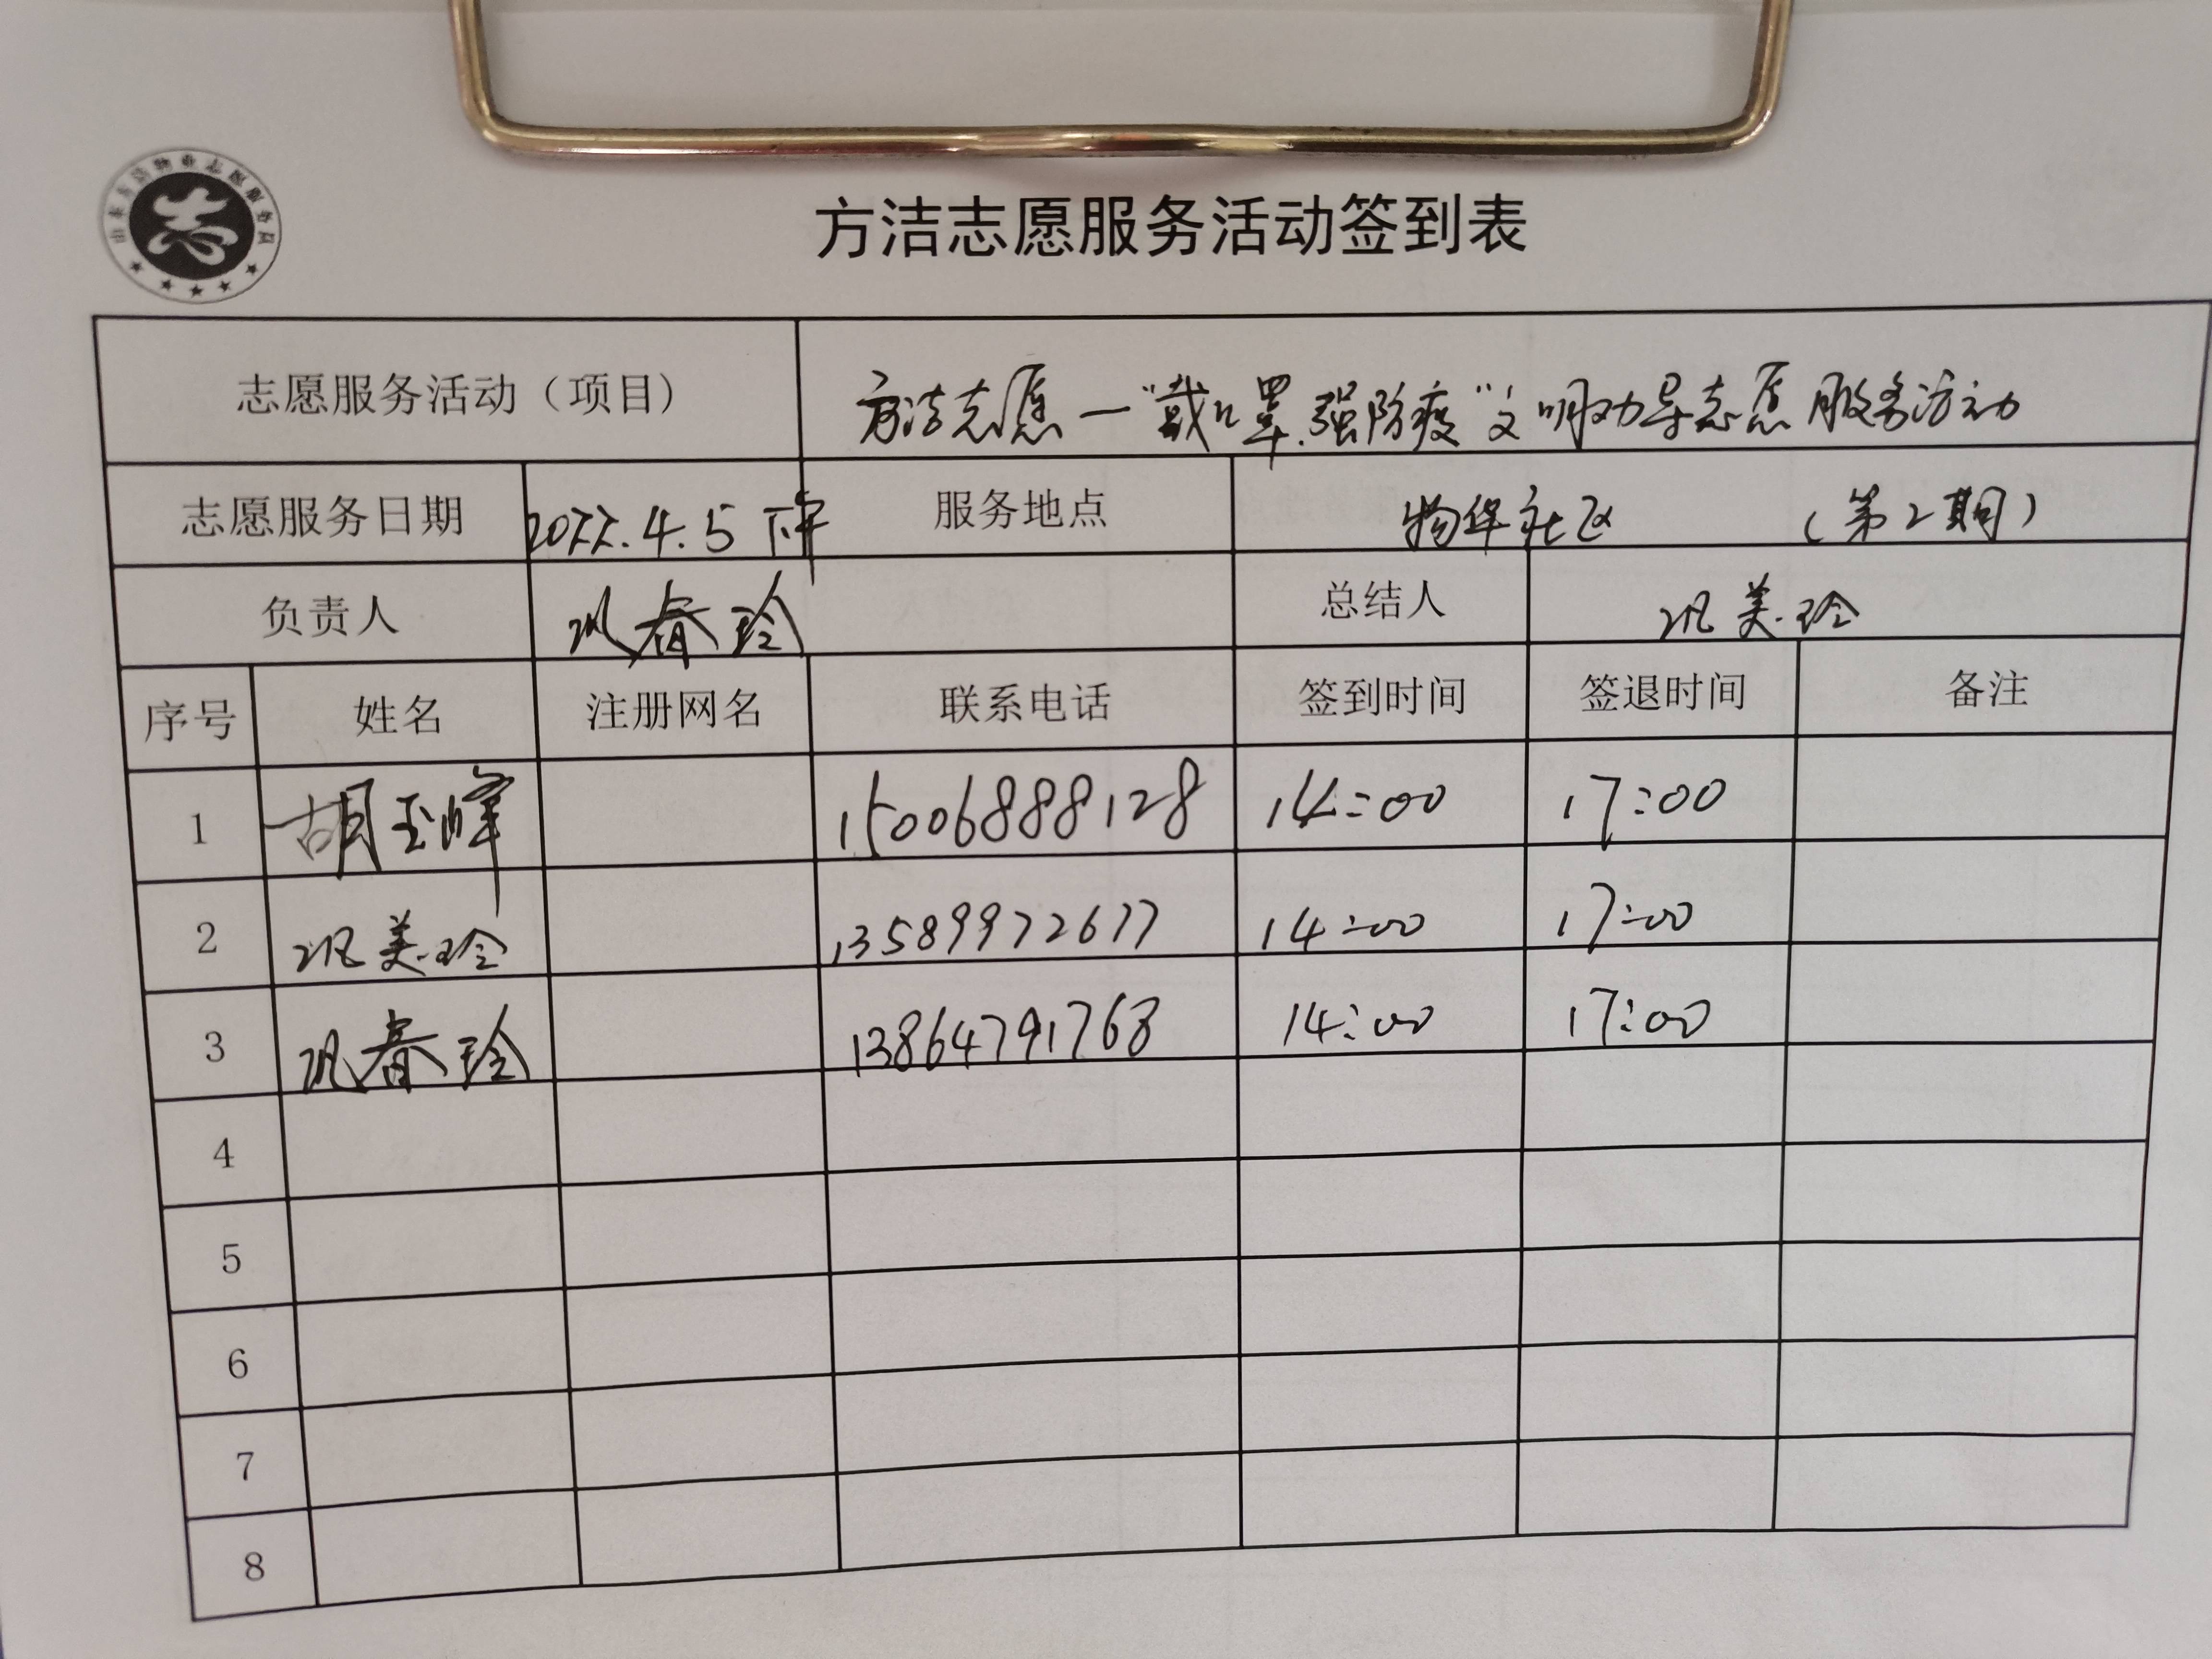 山东方洁物业志愿服务队
志
方洁志愿服务活动签到表
志愿服务活动（项目） 方洁志愿一“戴口罩.强防疫”文明劝导志愿服务活动
志愿服务日期 2022.4.5 下午 服务地点 物华社区 （第2期）
负责人 巩春玲 总结人 巩美玲
序号 姓名 注册网名 联系电话 签到时间 签退时间 备注
1 胡玉峰 15006888128 14:00 17:00
2 巩美玲 13589972677 14:00 17:00
3 巩春玲 13864791768 14:00 17:00
4
5
6
7
8